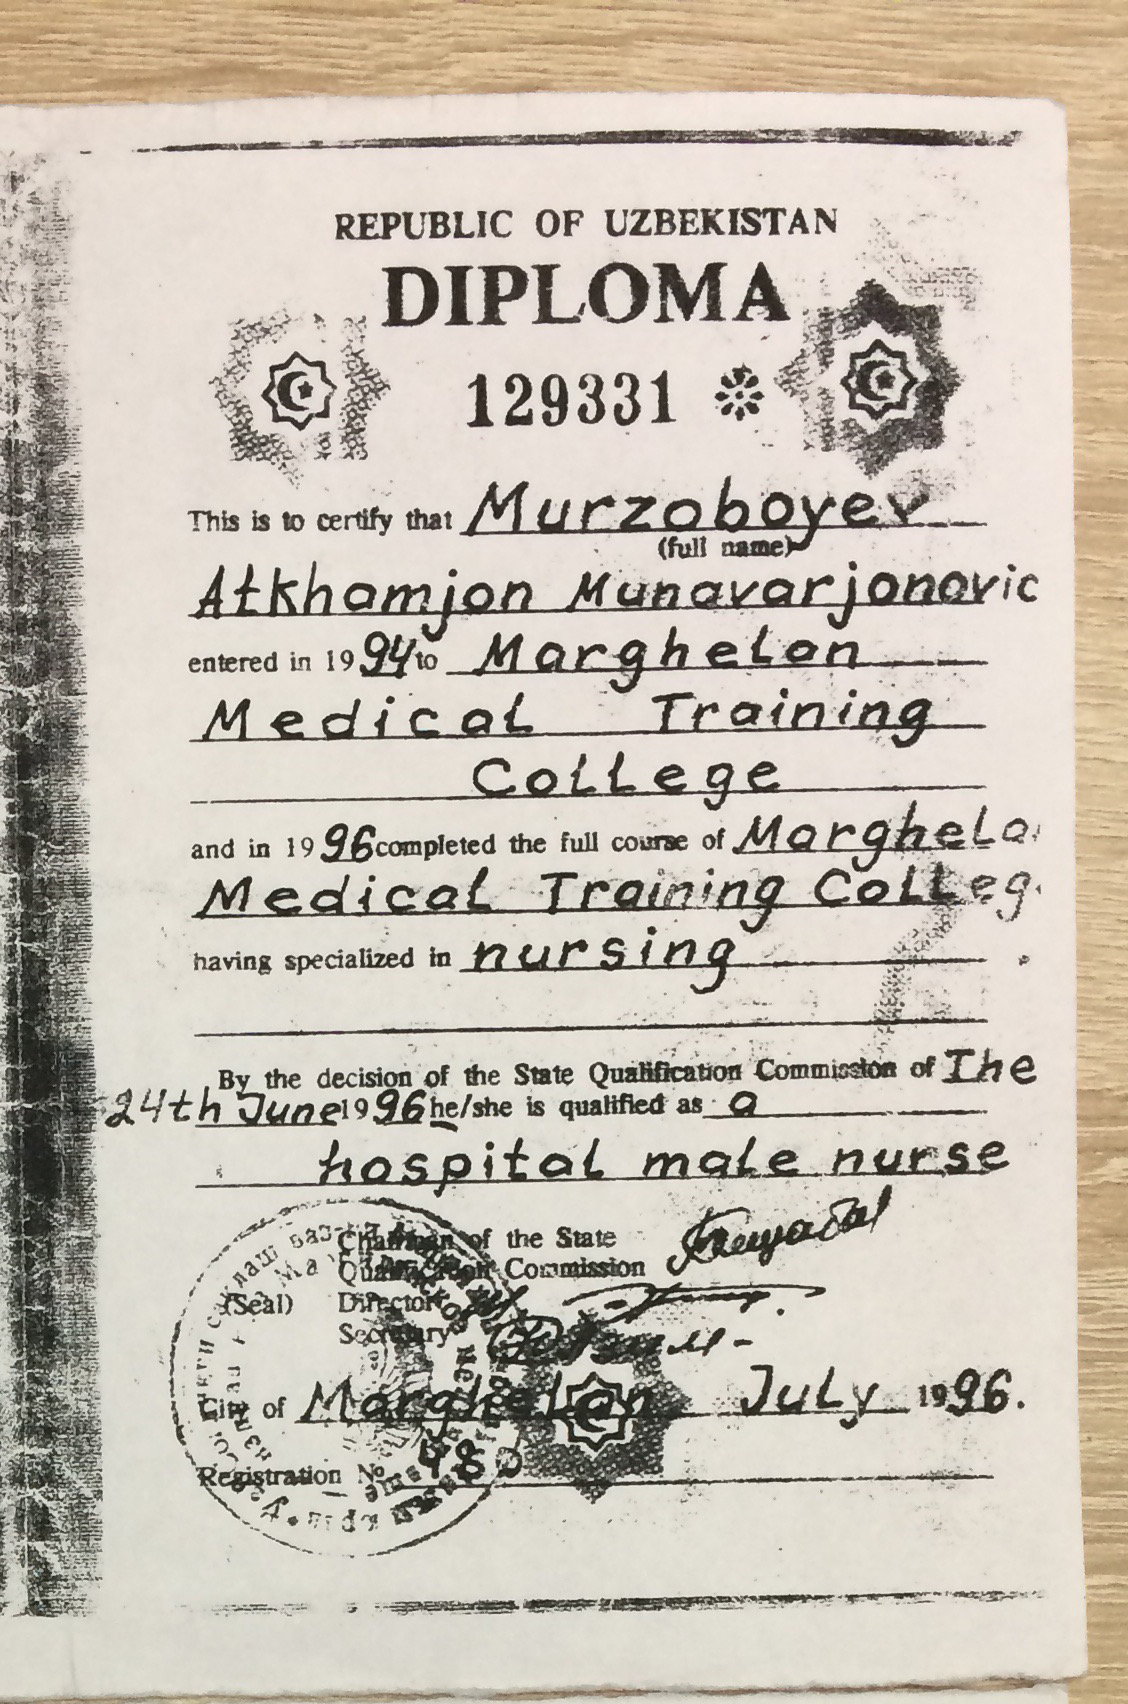 REPUBLIC OF UZBEKISTAN
DIPLOMA
129331
This is to certify that Murzoboyev
(full name)
Atkhamjon Munavarjonovic
entered in 1994 to Marghelan
Medical Training
College
and in 1996 completed the full course of Marghela
Medical Training Colleg
having specialized in nursing
By the decision of the State Qualification Commission of The
24th June 1996 he/she is qualified as a
hospital male nurse
Chairman of the State
Qualification Commission
(Seal) Director
Secretary
City of Marghelan July 1996.
Registration No